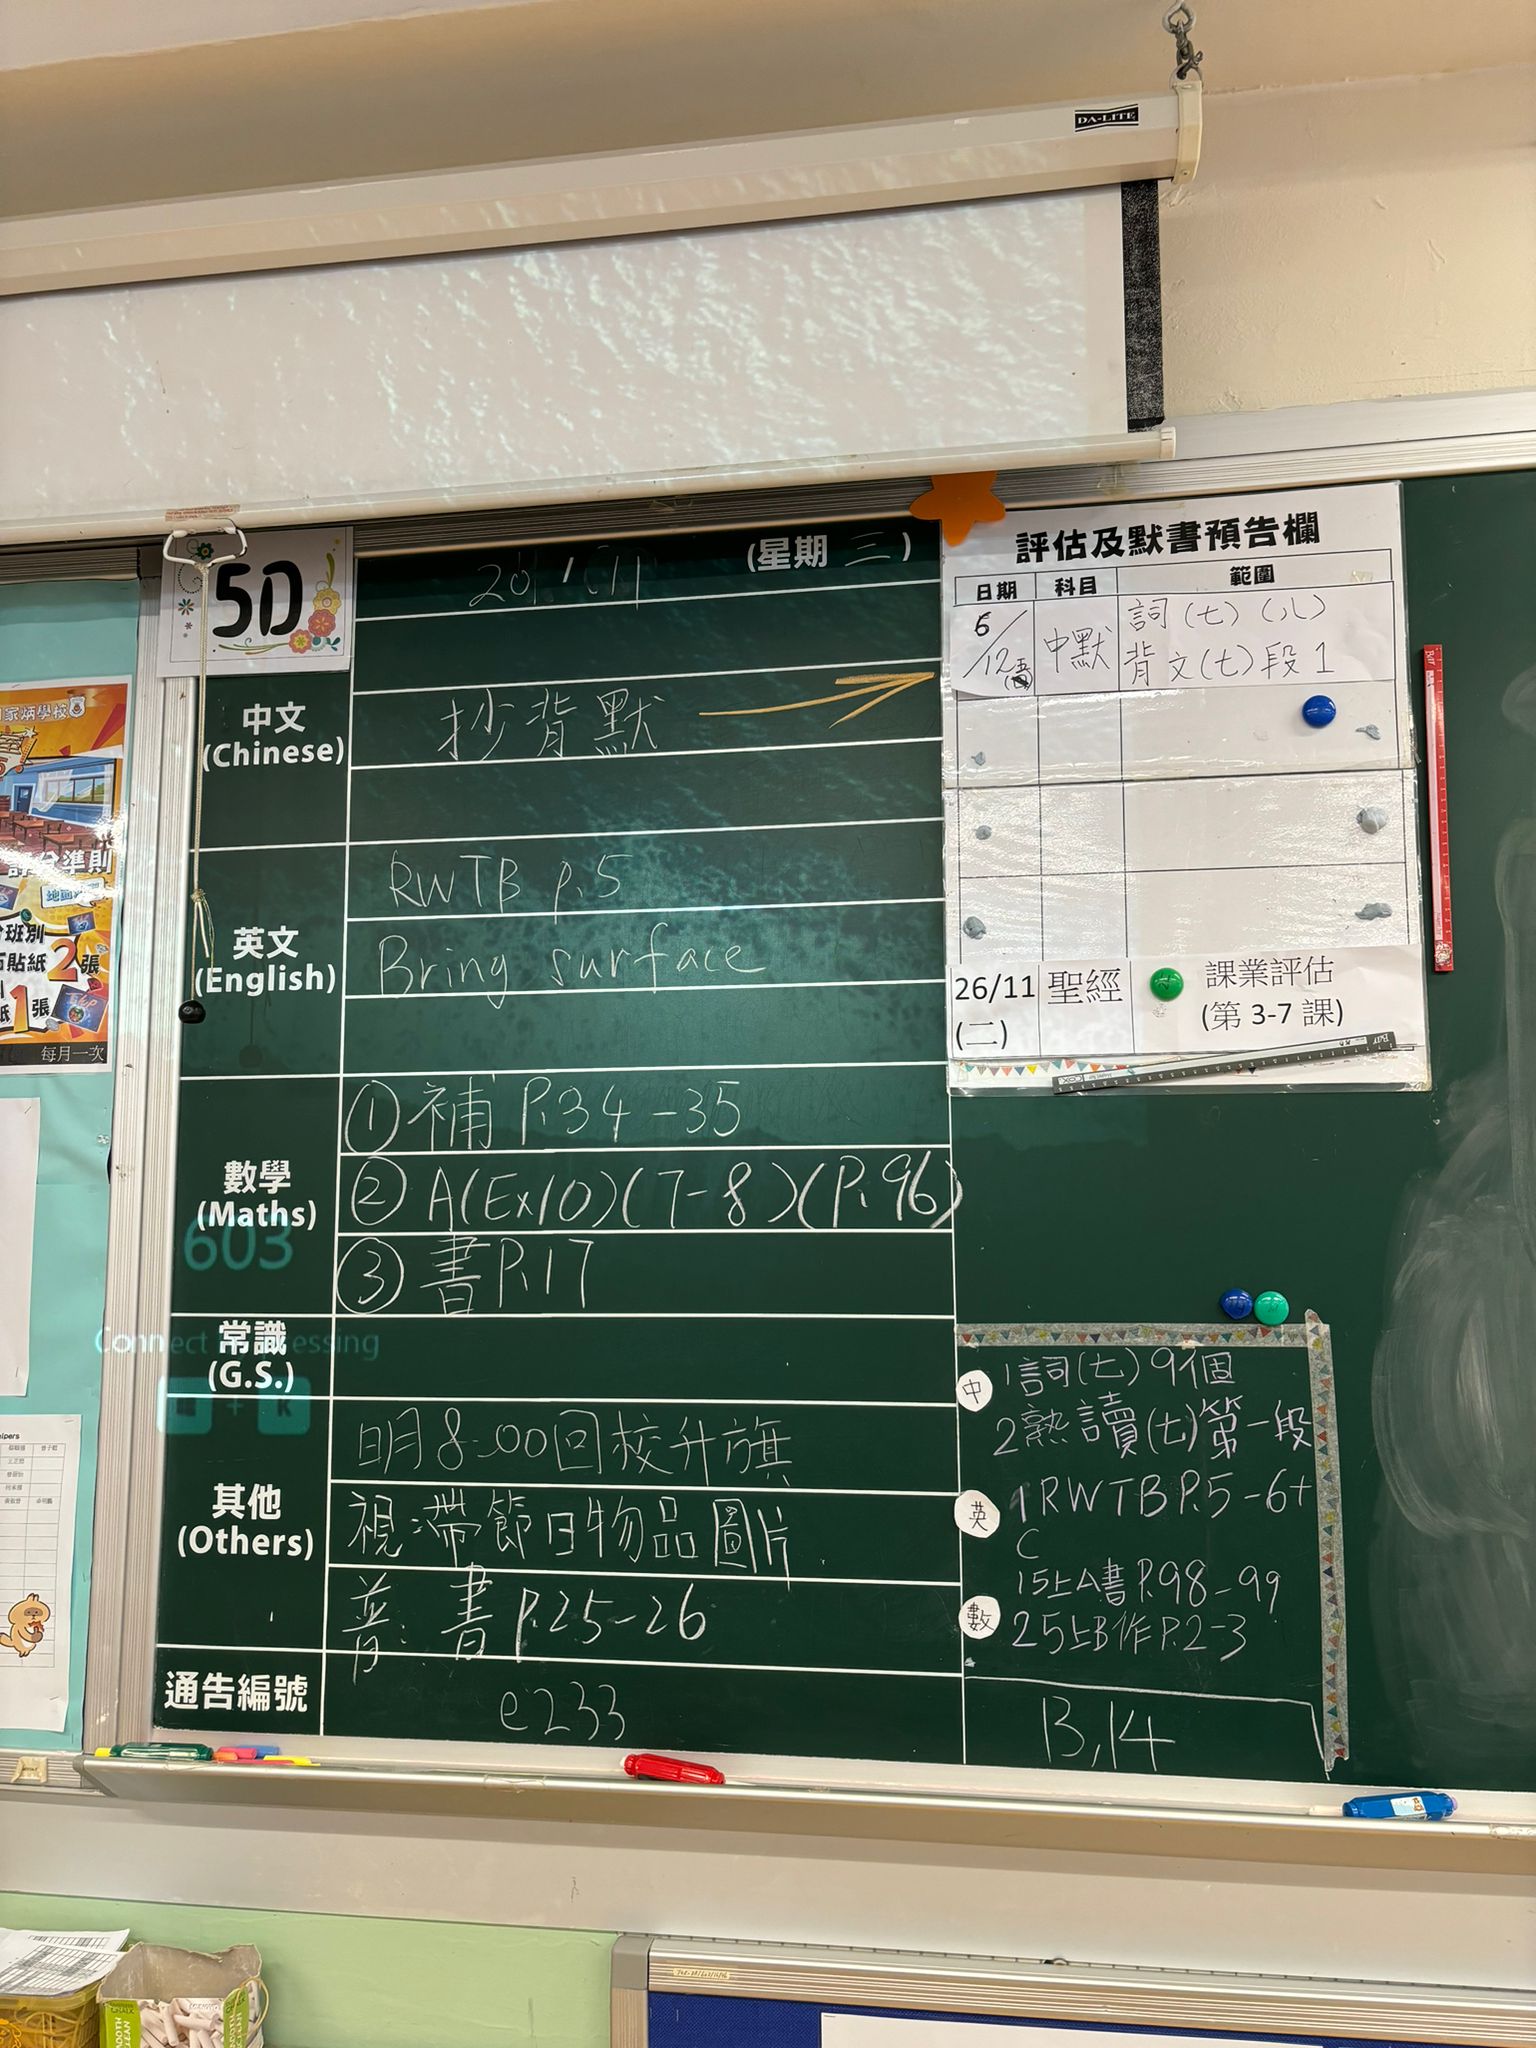 DA-LITE
5D
20/11
(星期 三)
中文
(Chinese)
抄背默
英文
(English)
RWTB p.5
Bring surface
數學
(Maths)
① 補 P.34-35
② A(Ex10)(7-8)(P.96)
③ 書 P.17
603
常識
(G.S.)
Connect
essing
+ K
其他
(Others)
明8:00回校升旗
視:帶節日物品圖片
普:書 P.25-26
通告編號
e233
評估及默書預告欄
日期 科目 範圍
6/12 中默 詞(七)(八)
背文(七)段1
26/11 聖經 課業評估
(二) (第 3-7 課)
中 1詞(七)9個
2熟讀(七)第一段
英 1RWTB P.5-6+
C
15上A書P.98-99
數 25上B作P.2-3
13,14
家炳學校
評分準則
班別
貼紙 2 張
紙 1 張
每月一次